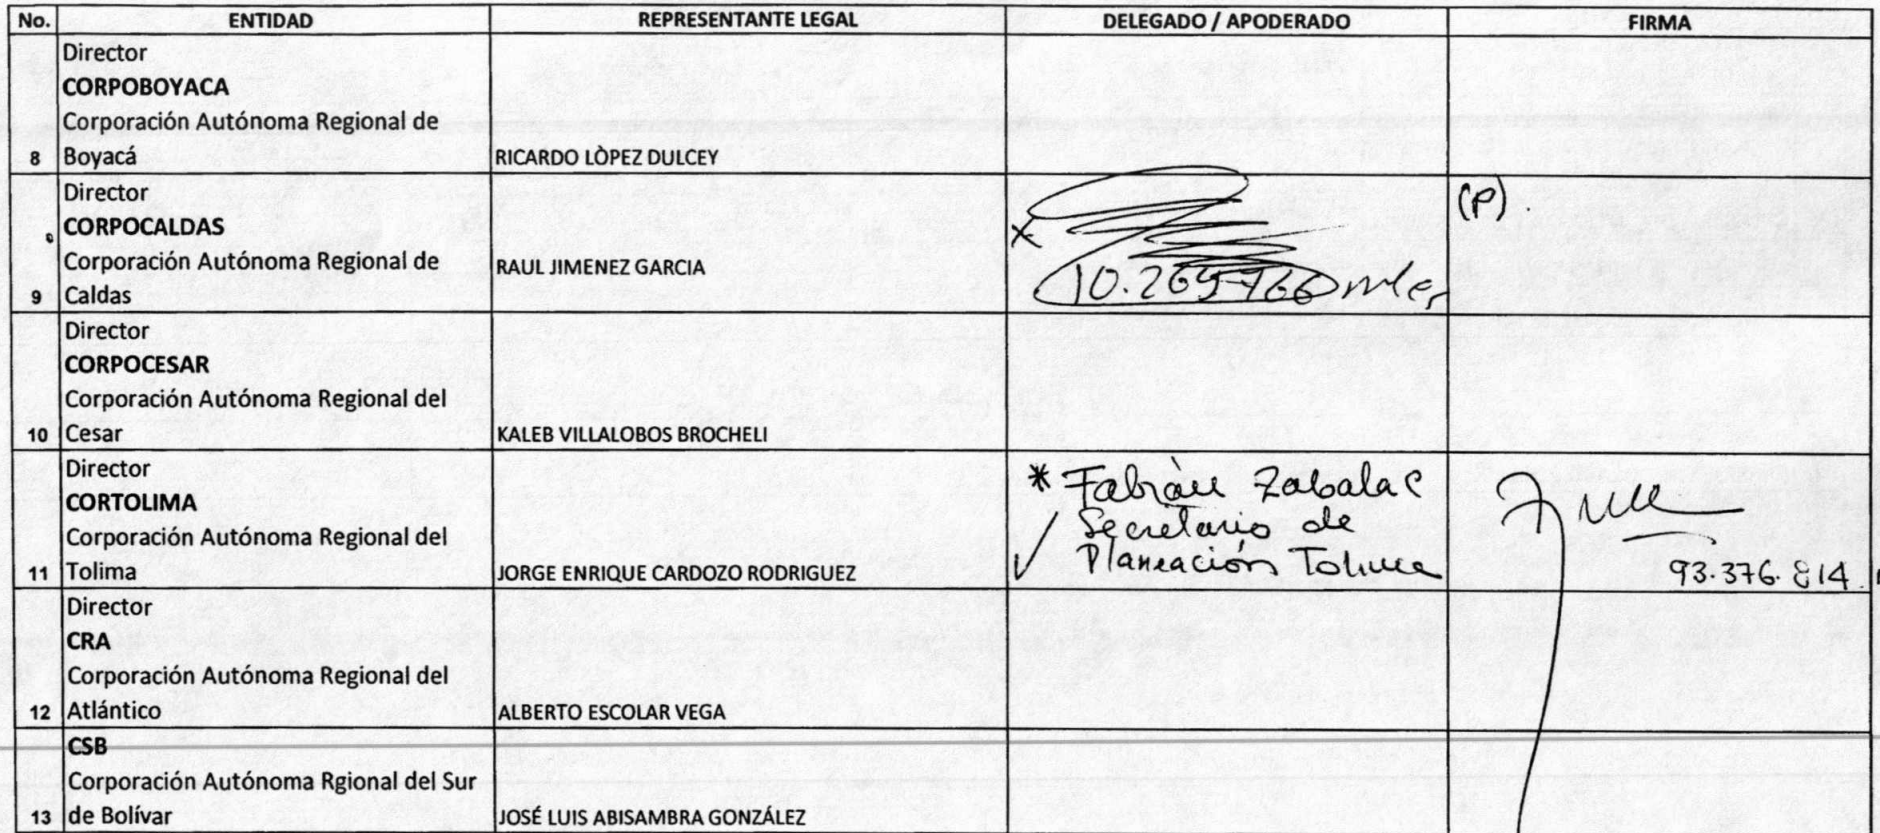 No. ENTIDAD REPRESENTANTE LEGAL DELEGADO / APODERADO FIRMA
Director
CORPOBOYACA
Corporación Autónoma Regional de
8 Boyacá RICARDO LÒPEZ DULCEY
Director
CORPOCALDAS
Corporación Autónoma Regional de
9 Caldas RAUL JIMENEZ GARCIA
x
10.265766
(P)
Director
CORPOCESAR
Corporación Autónoma Regional del
10 Cesar KALEB VILLALOBOS BROCHELI
Director
CORTOLIMA
Corporación Autónoma Regional del
11 Tolima JORGE ENRIQUE CARDOZO RODRIGUEZ
* Fabiàn Zabala C
Secretario de
✓ Planeación Tolima
93.376.814
Director
CRA
Corporación Autónoma Regional del
12 Atlántico ALBERTO ESCOLAR VEGA
CSB
Corporación Autónoma Rgional del Sur
13 de Bolívar JOSÉ LUIS ABISAMBRA GONZÁLEZ